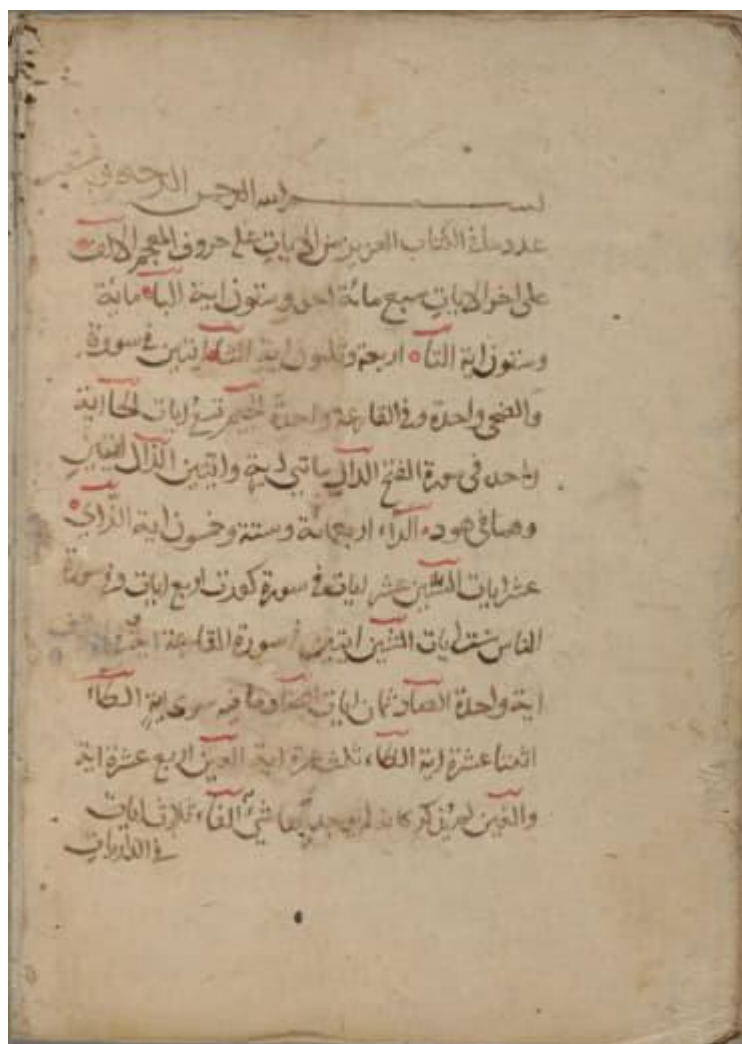 بسم الله الرحمن الرحيم وبه نستعين
عدد ما في الكتاب العزيز من الايات على حروف المعجم الالف
على اخر الايات سبع مائة احد وستون اية الباء مائة
وستون اية التاء اربعة وثلثون اية الثاء ايتين في سورة
والضحى واحدة وفي القارعة واحدة الجيم تسع ايات الحا اية
واحد في سورة الفتح الدال ماتي اية وايتين الذال ايتين
وهما في هود الراء اربعمائة وستة وخمسون اية الزاي
عشر ايات السين عشر ايات في سورة كورت اربع ايات وفي سورة
الناس ست ايات الشين ايتين سورة القارعة اية
اية واحدة الصاد ثمان ايات الضاد وما فيه سوى اية الطاء
اثنا عشرة اية الظاء اية العين اربع عشرة اية
والغين لم يذكر شيء الفاء ثلاث ايات
في الذاريات